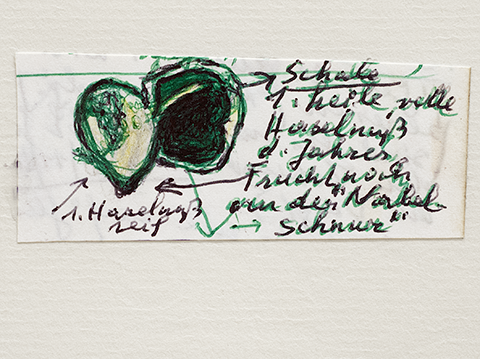 Schale
1. heile, volle
Haselnuß
d. Jahres
Frucht noch
an der "Nabel-
schnur"
1. Haselnuß
reif